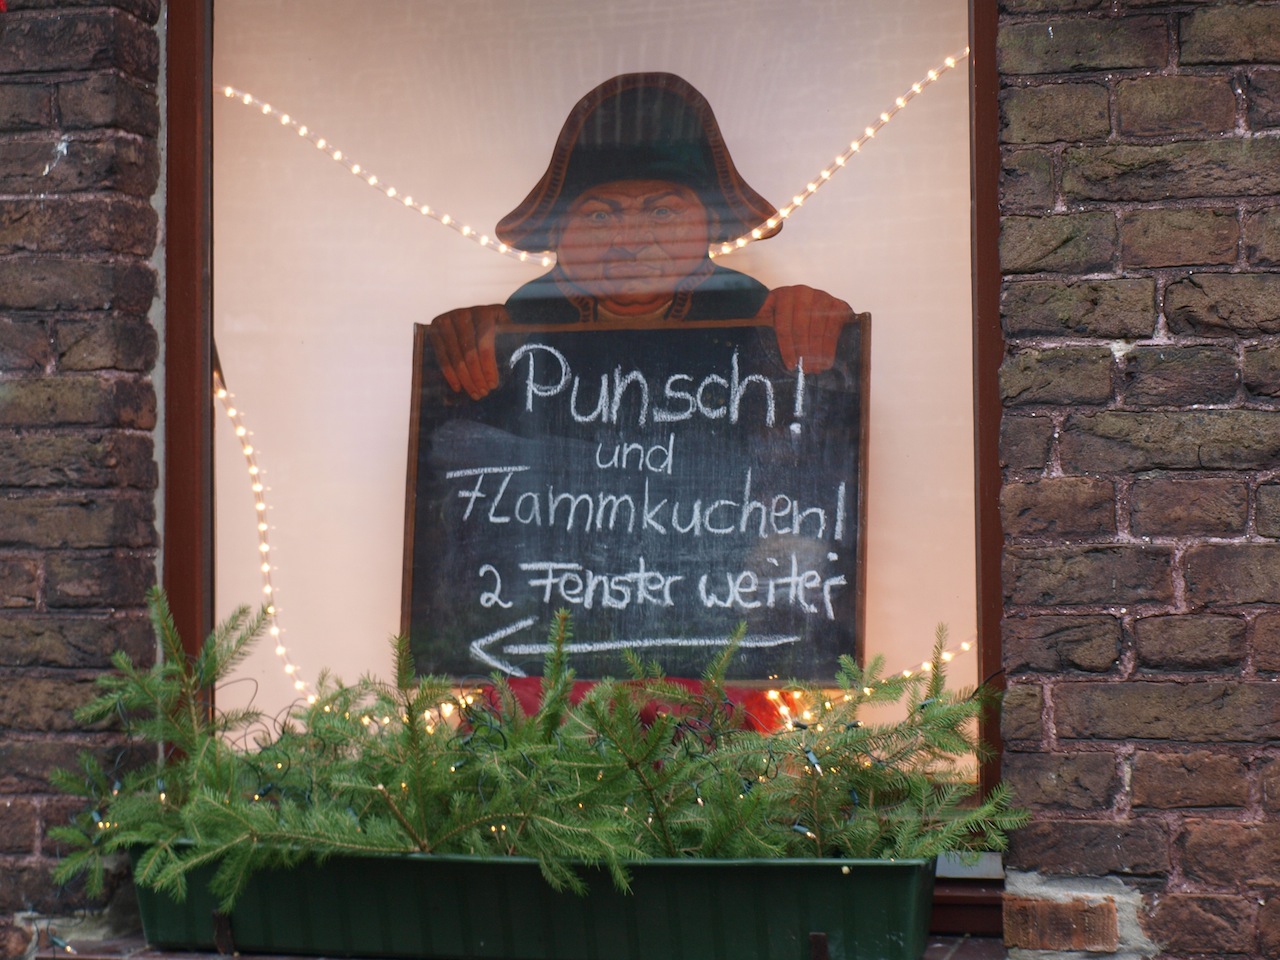 Punsch!
und
Flammkuchen!
2 Fenster weiter